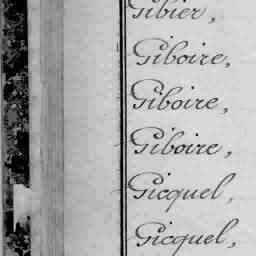 Gibier,
Giboire,
Giboire,
Giboire,
Gicquel,
Gicquel,